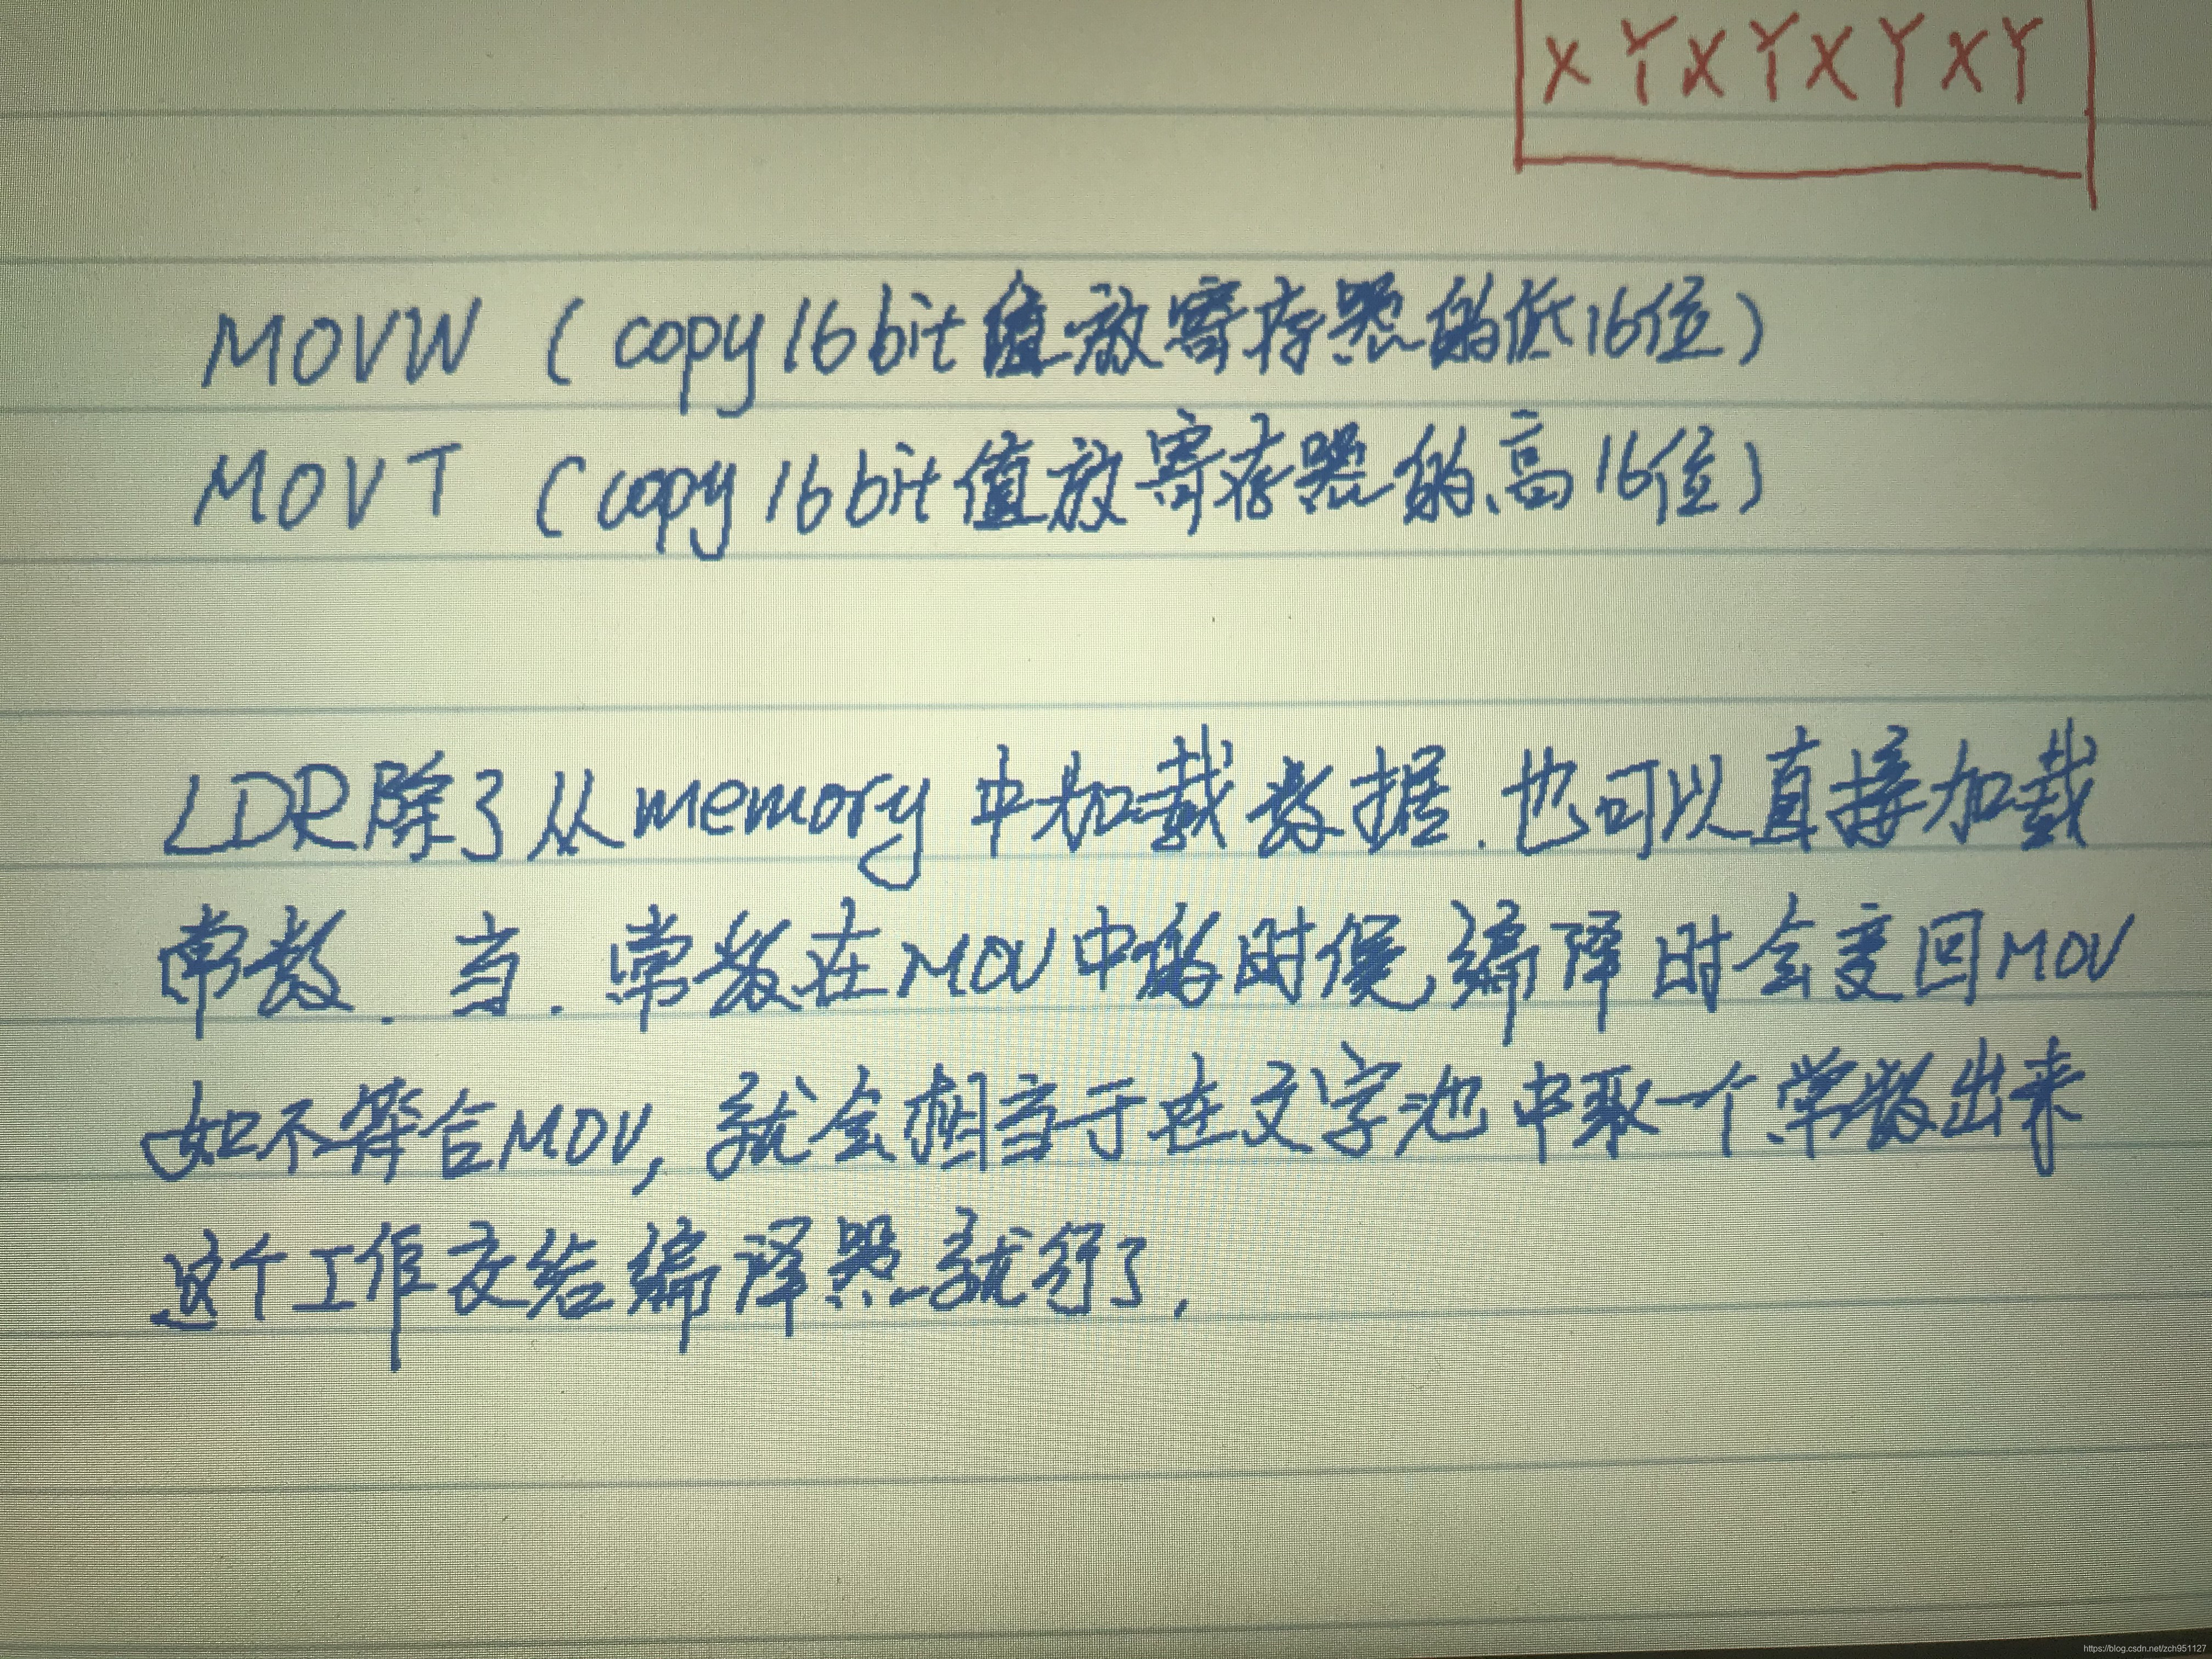 XYXYXYXY
MOVW (copy16bit值放寄存器的低16位)
MOVT (copy16bit值放寄存器的高16位)
LDR除了从memory中加载数据.也可以直接加载
常数.当.常数在MOV中的时候,编译时会变回MOV
如不符合MOV,就会相当于在文字池中取一个常数出来
这个工作交给编译器就行了.
https://blog.csdn.net/zch951127